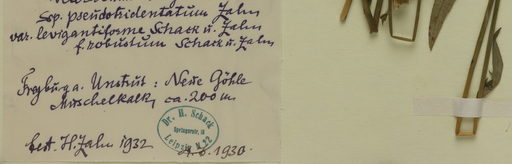 Ssp. pseudotridentatum Zahn
var. levigantiforme Schack u. Zahn
f. robustum Schack u. Zahn
Freyburg a. Unstrut: Neue Göhle
Muschelkalk, ca. 200 m
Dr. H. Schack
Leipzig N 22
det. H. Zahn 1932
6. 1930.